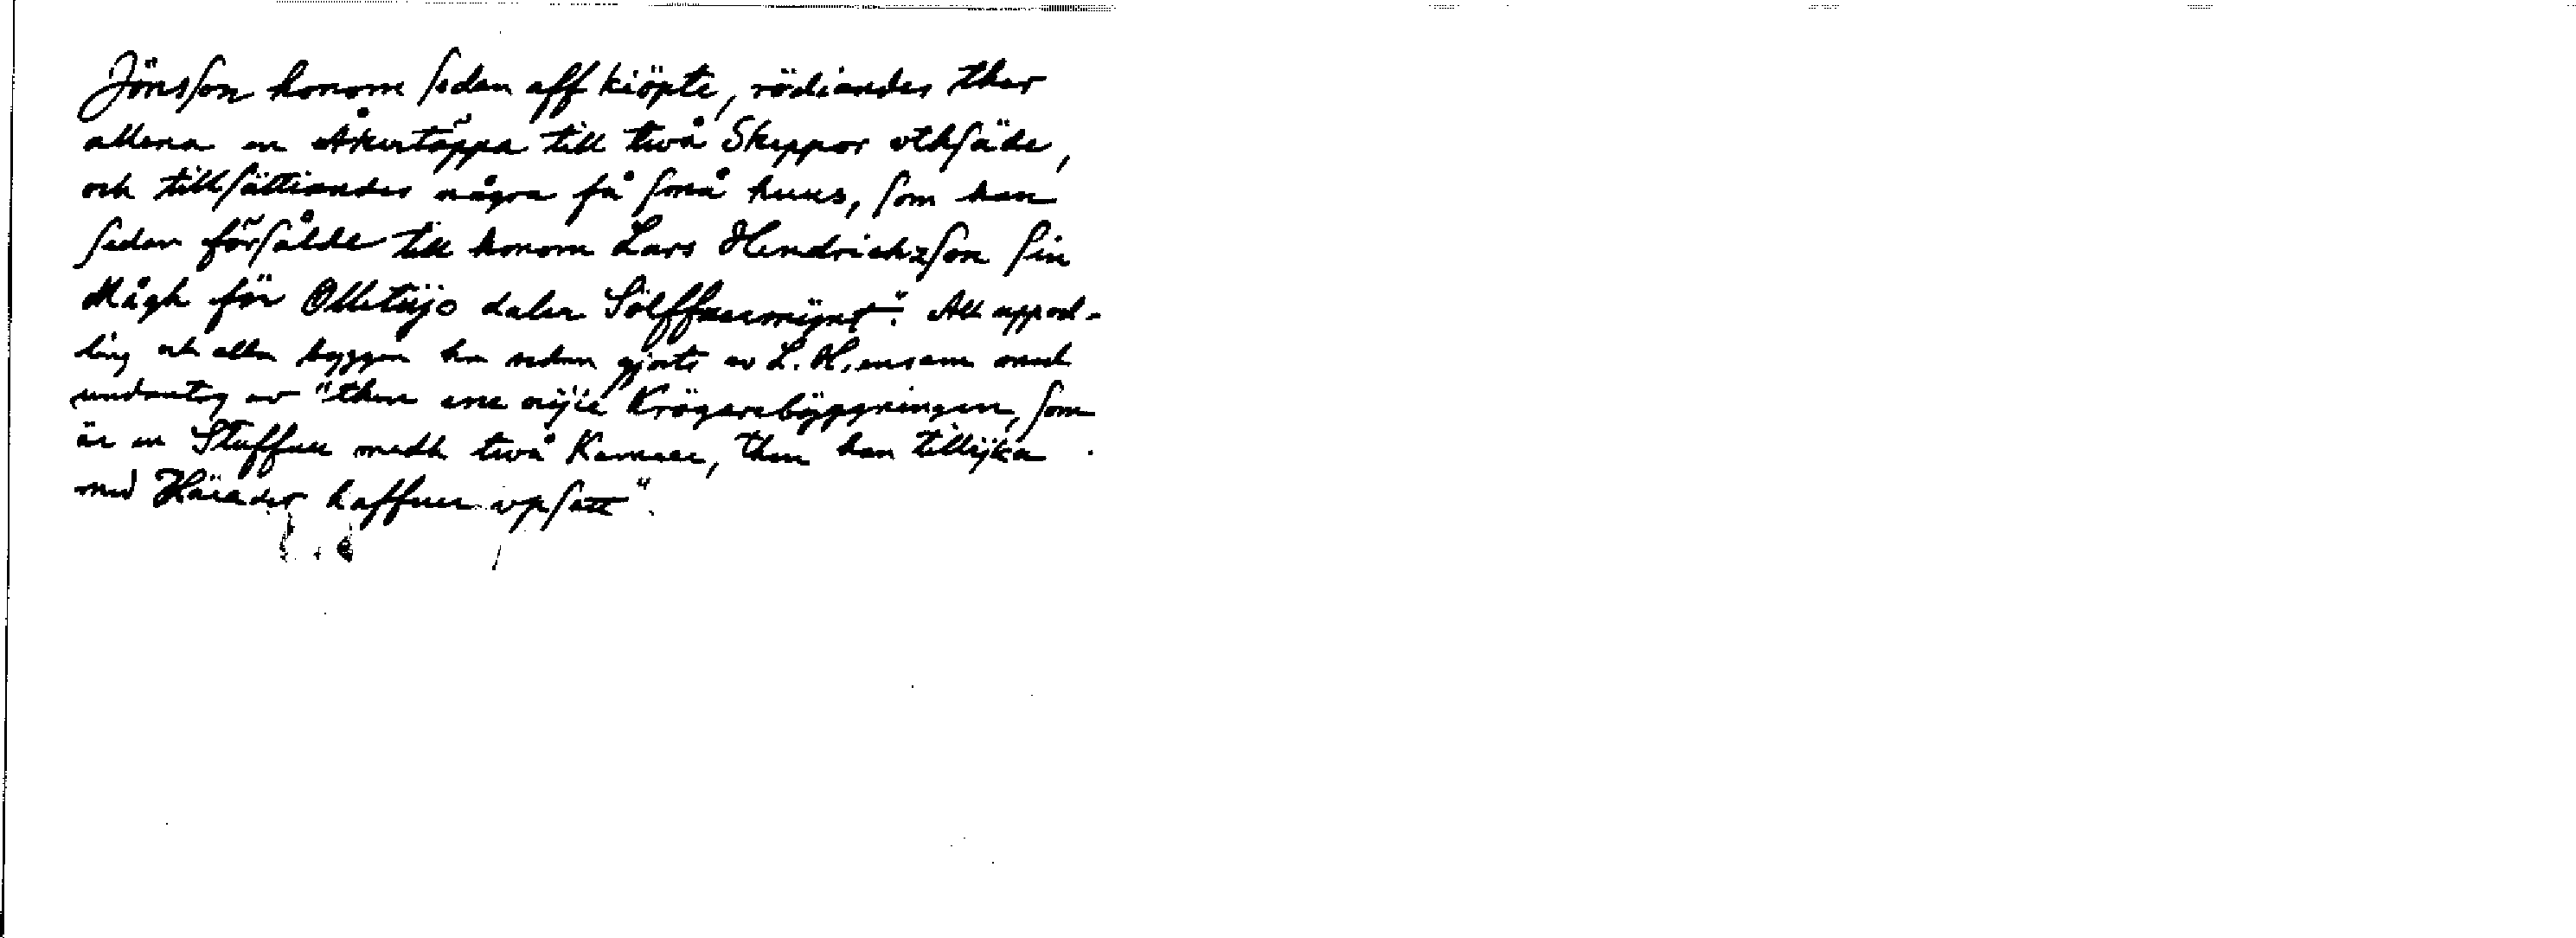 Jönsson honom sedan aff kiöpte, rödiandes ther
allena en Åkertäppa till twå Skeppor vthsäde,
och tillsättiandes några få små huus, som han
sedan försålde till honom Lars Hendrichzson sin
Mågh för Ottetijo daler Sölffuermÿnt". All uppod-
ling och alla byggen ha sedan gjorts av L. H. ensam med
undantag av "then ene nÿie Krögarebÿggningen, som
är en Stuffue medh twå Kamrar, then han tillijka
med Häradet haffuer vpsatt".